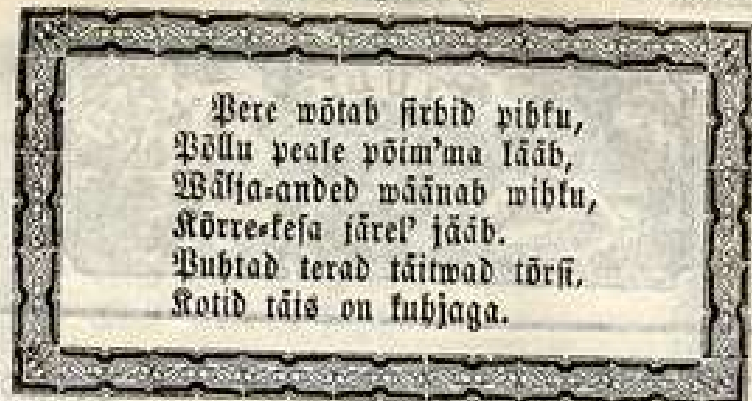 Pere wõtab sirbid pihku,
Põllu peale põim'ma lääb,
Wälja-anded wäänab wihku,
Kõrre-kesa järel' jääb.
Puhtad terad täitwad tõrsi,
Kotid täis on kuhjaga.